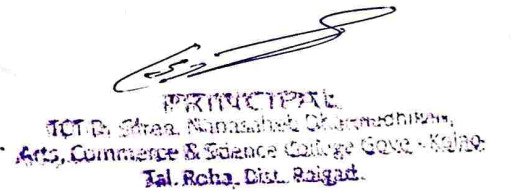 PRINCIPAL
Shree. Nanasaheb Dharmadhikari,
Arts, Commerce & Science College Gove - Kolad
Tal. Roha, Dist. Raigad.